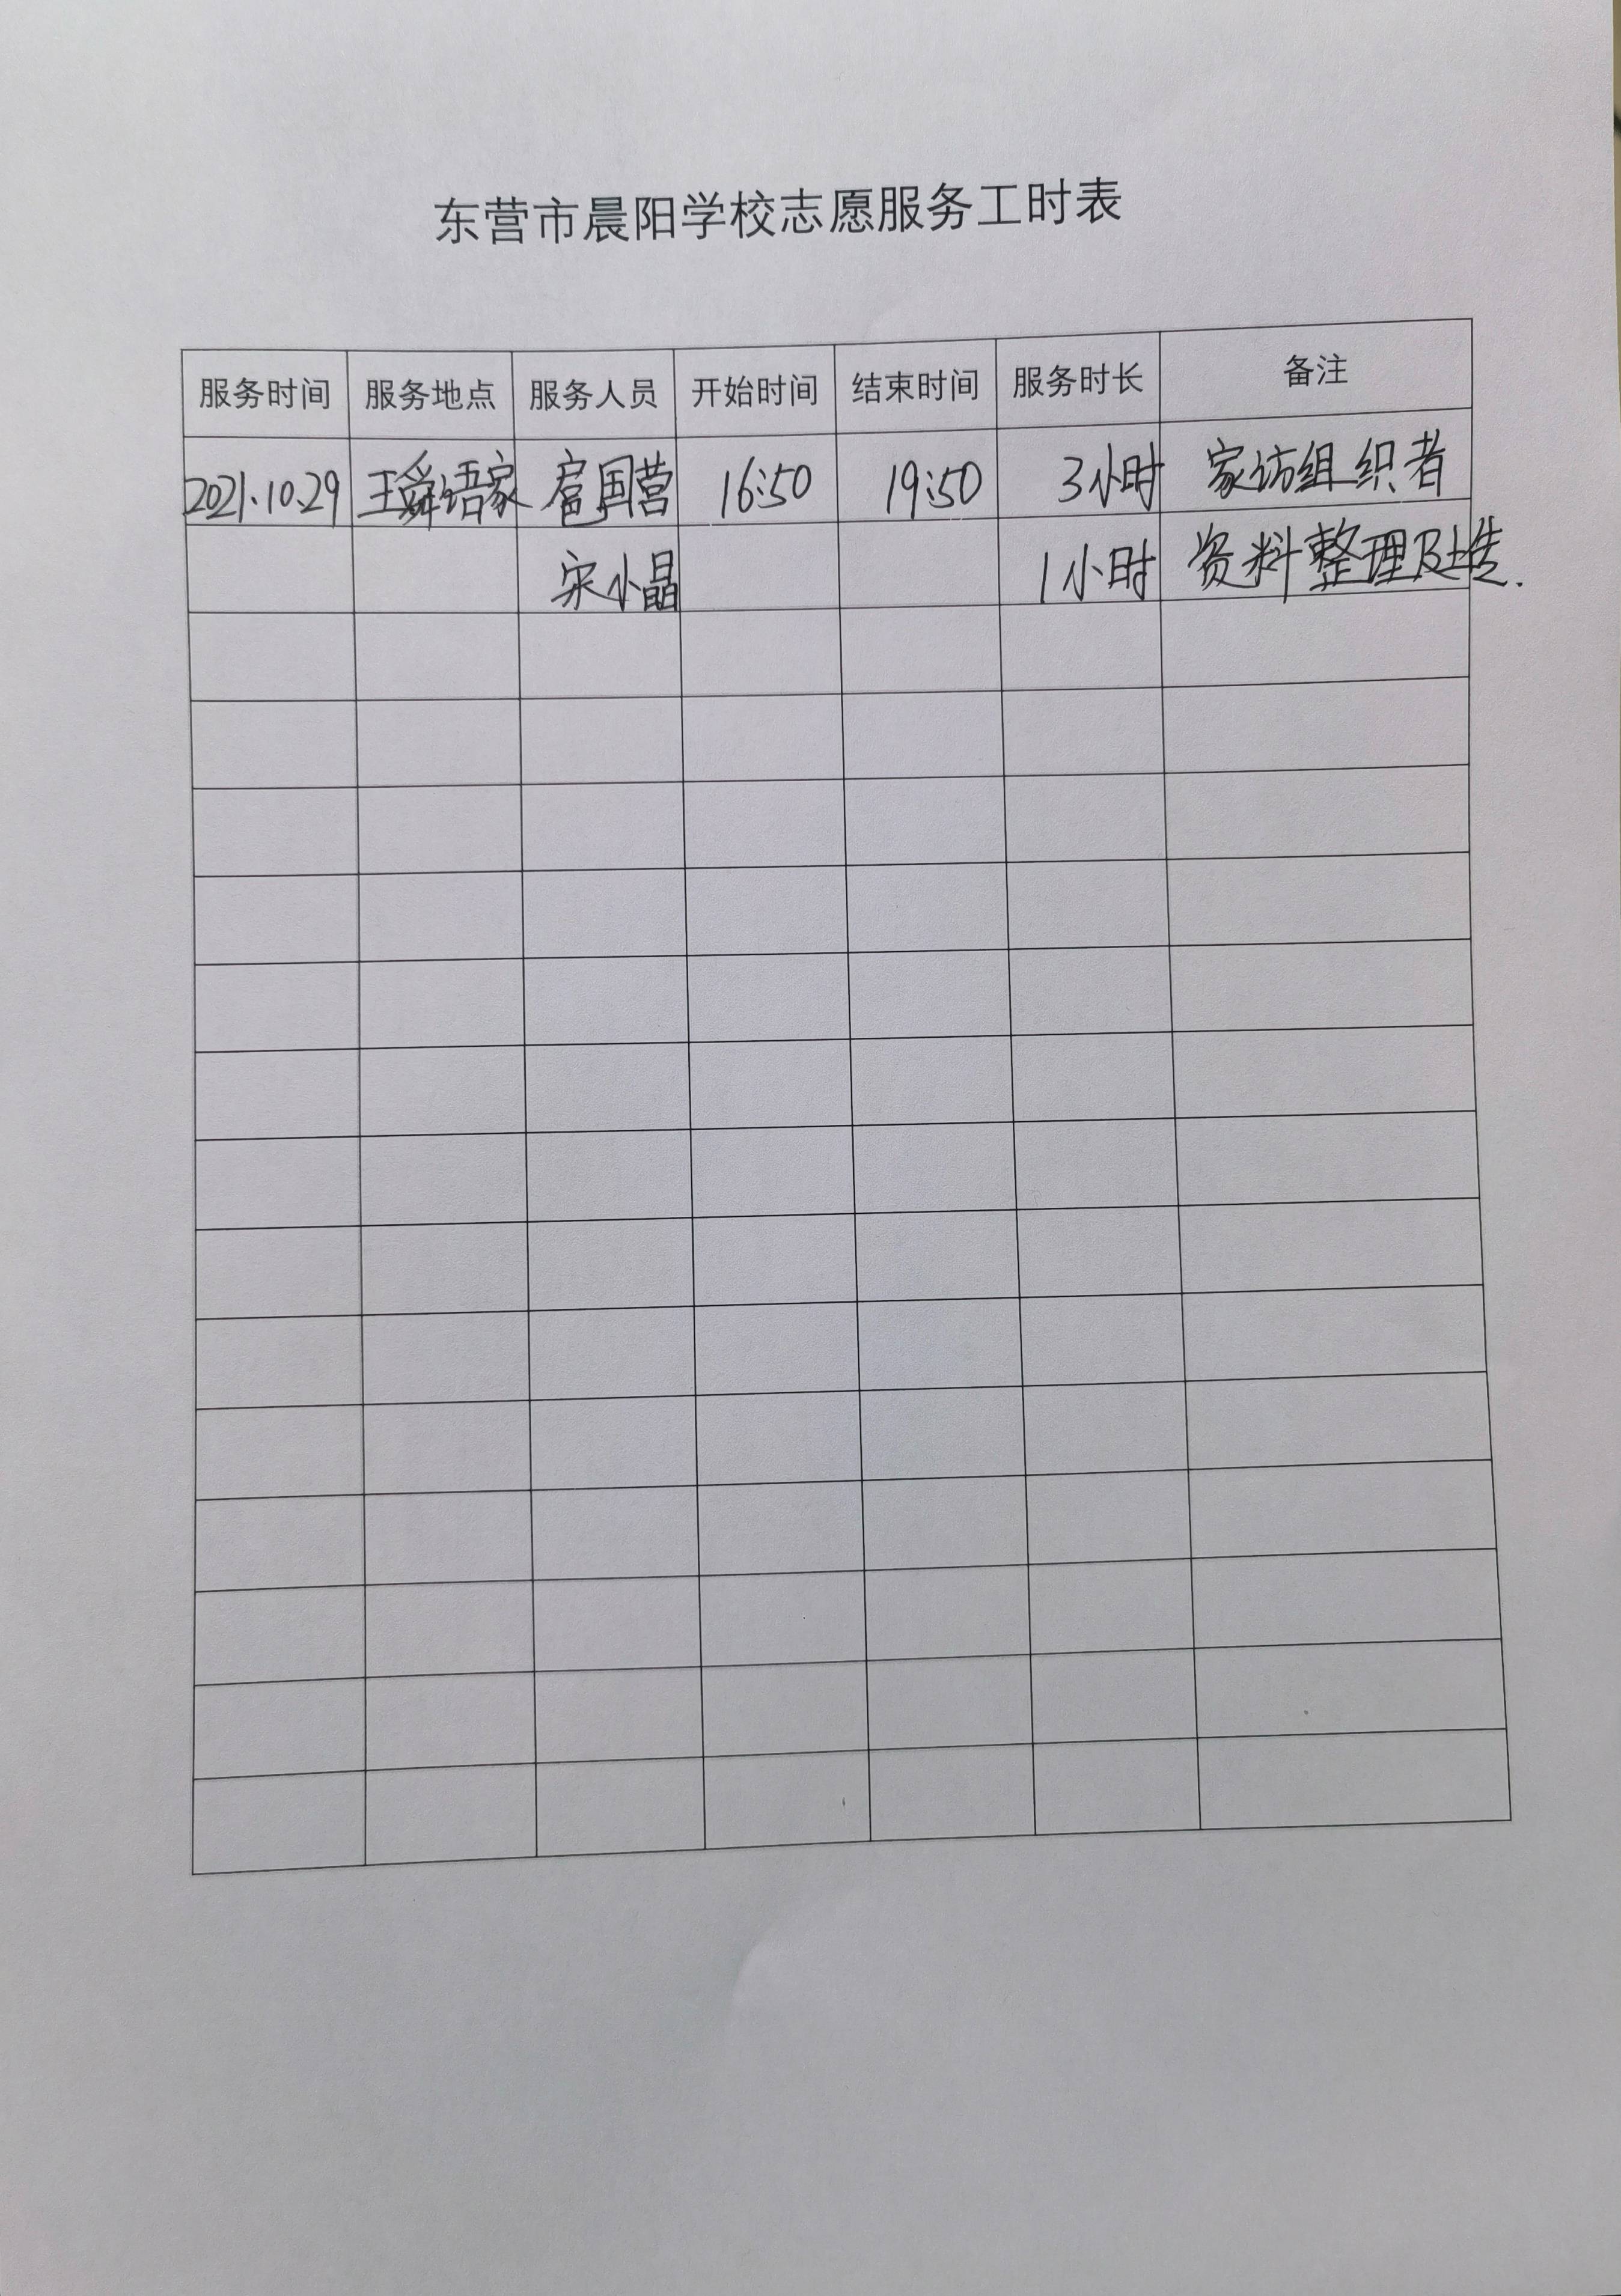 东营市晨阳学校志愿服务工时表
服务时间 服务地点 服务人员 开始时间 结束时间 服务时长 备注
2021.10.29 王舜语家 扈国营 16:50 19:50 3小时 家访组织者
宋小晶 1小时 资料整理及上传.